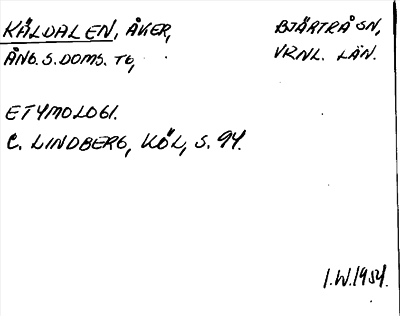 KÄLDALEN, ÅKER, BJÄRTRÅ SN,
ÅNG. S. DOMS. TG, VRNL. LÄN.
ETYMOLOGI.
C. LINDBERG, KÖL, S. 94.
I.W. 1954.